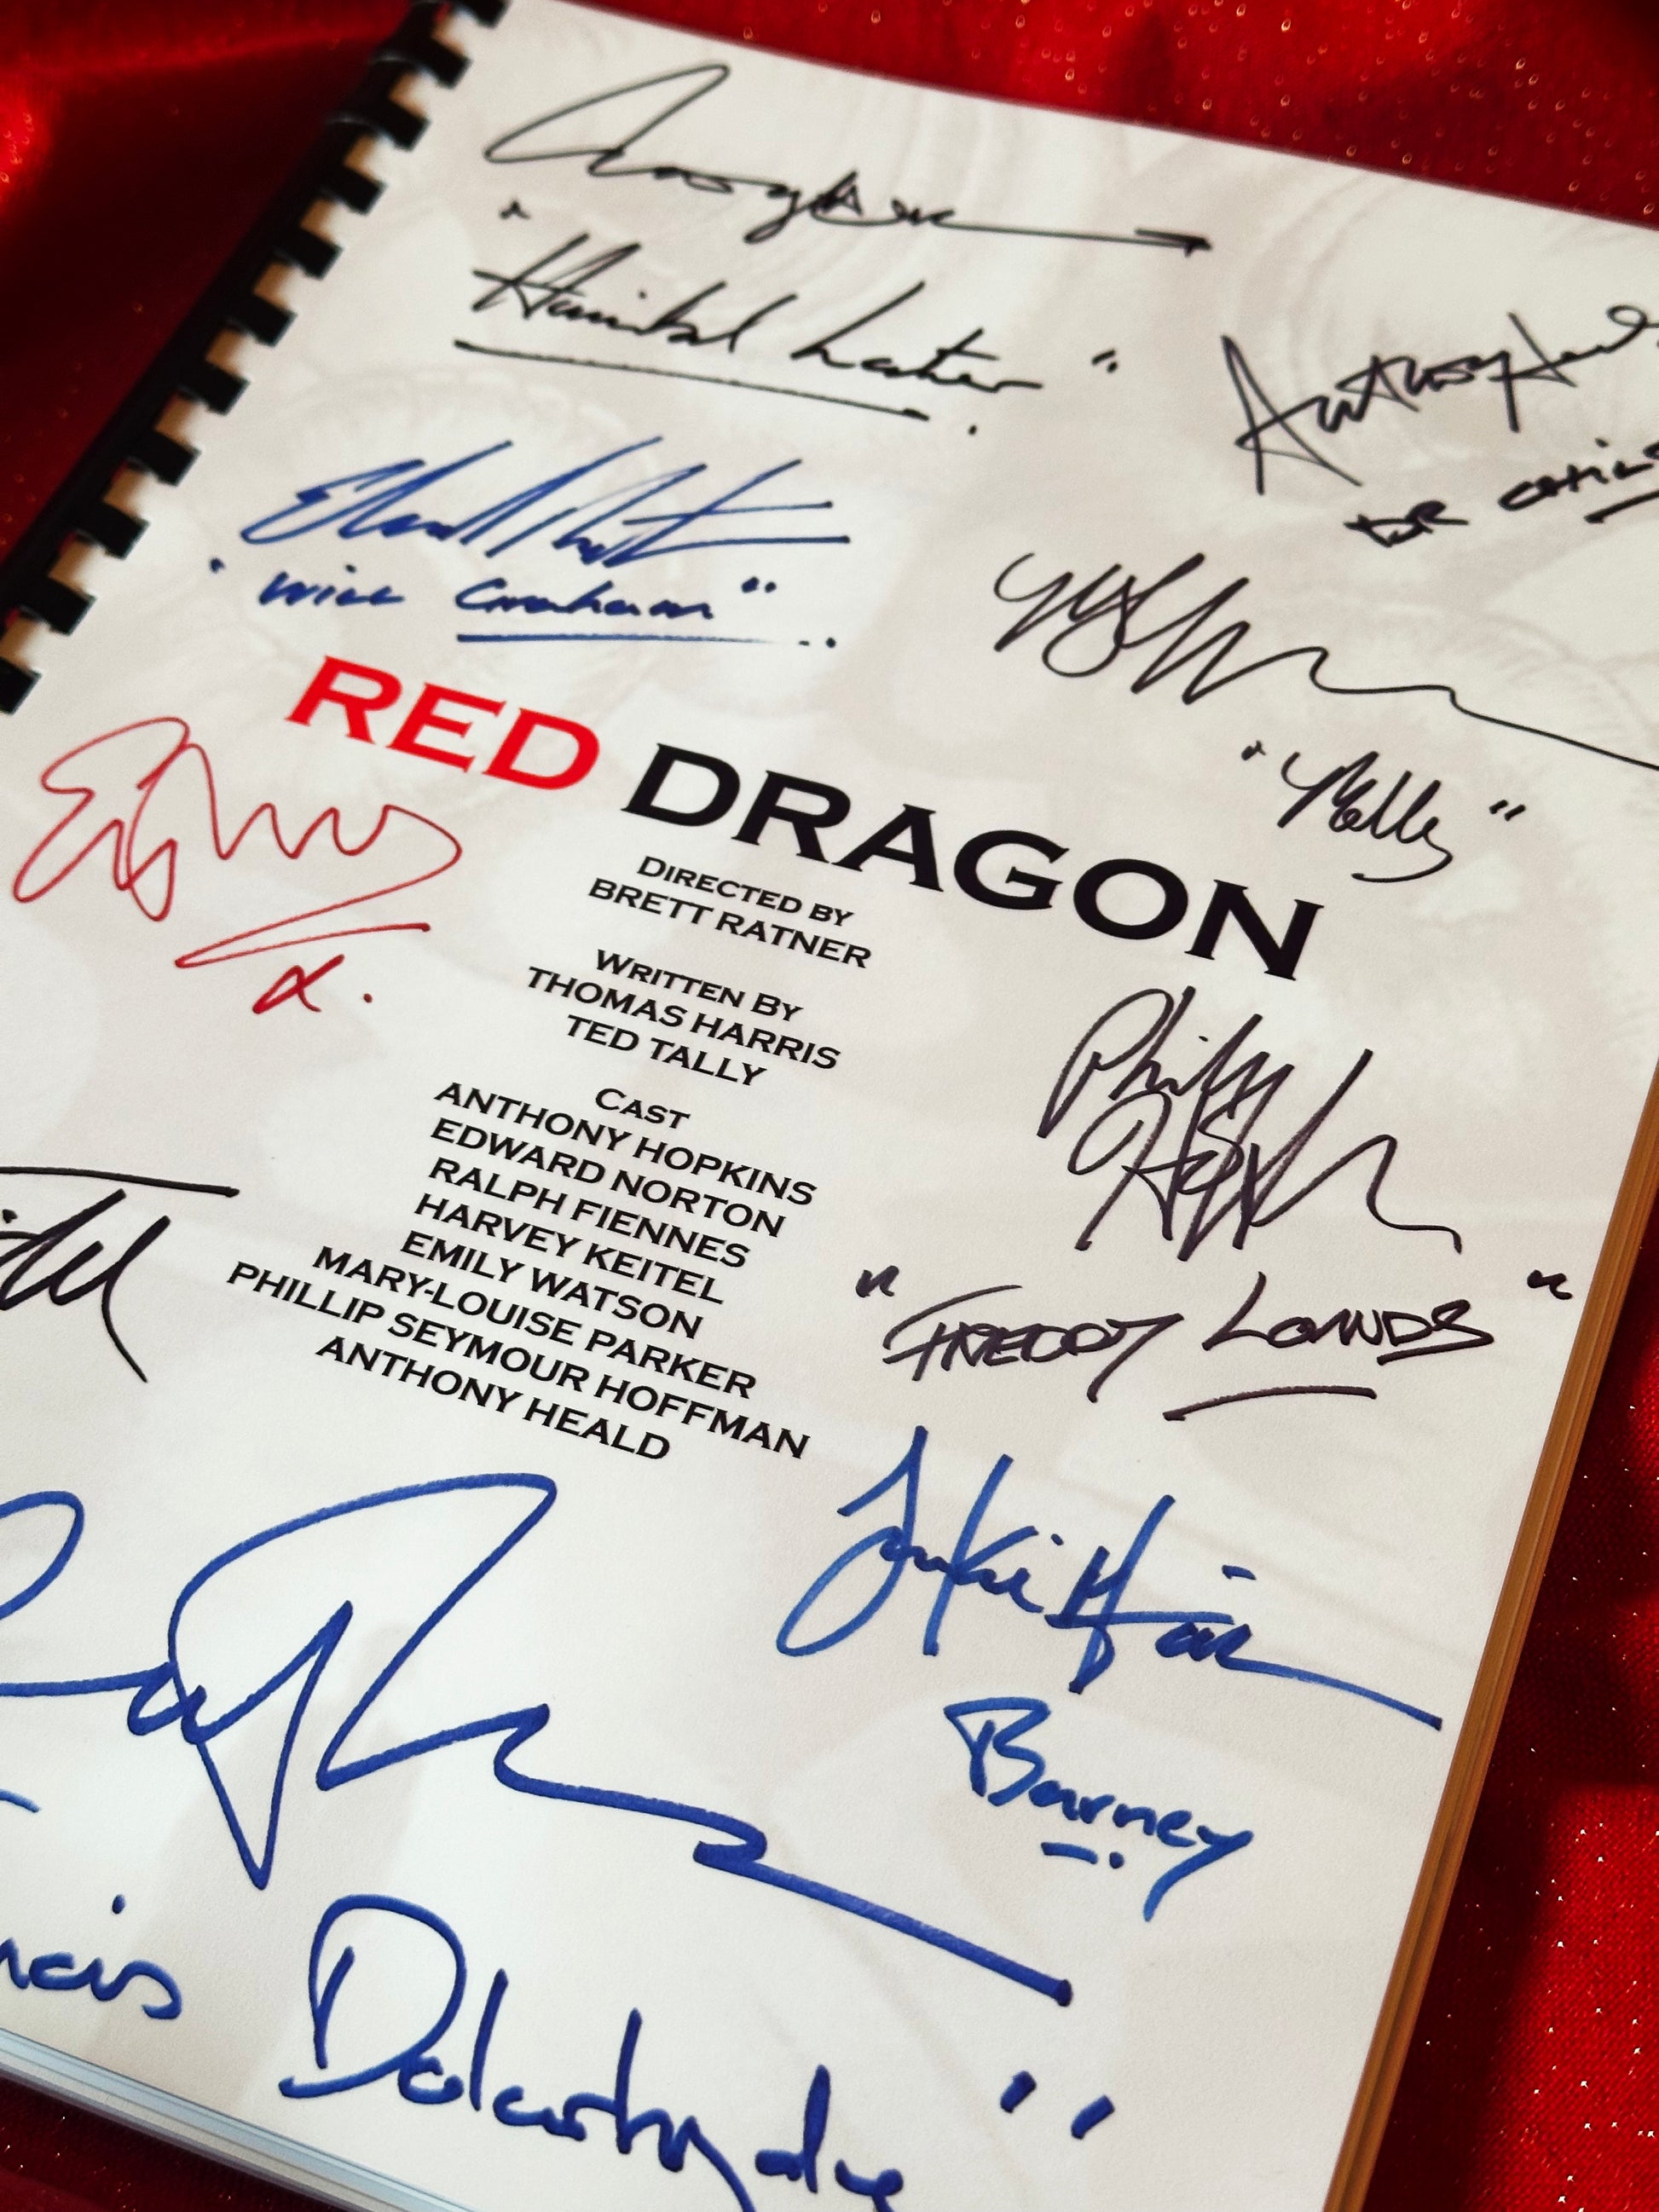 "Hannibal Lecter".
Anthony Heald
DR CHILTON
Edward Norton
"Will Graham"..
"Molly"
RED DRAGON
DIRECTED BY
BRETT RATNER
WRITTEN BY
THOMAS HARRIS
TED TALLY
CAST
ANTHONY HOPKINS
EDWARD NORTON
RALPH FIENNES
HARVEY KEITEL
EMILY WATSON
MARY-LOUISE PARKER
PHILLIP SEYMOUR HOFFMAN
ANTHONY HEALD
x.
"FREDDY LOUNDS"
Barney
Dolarhyde"